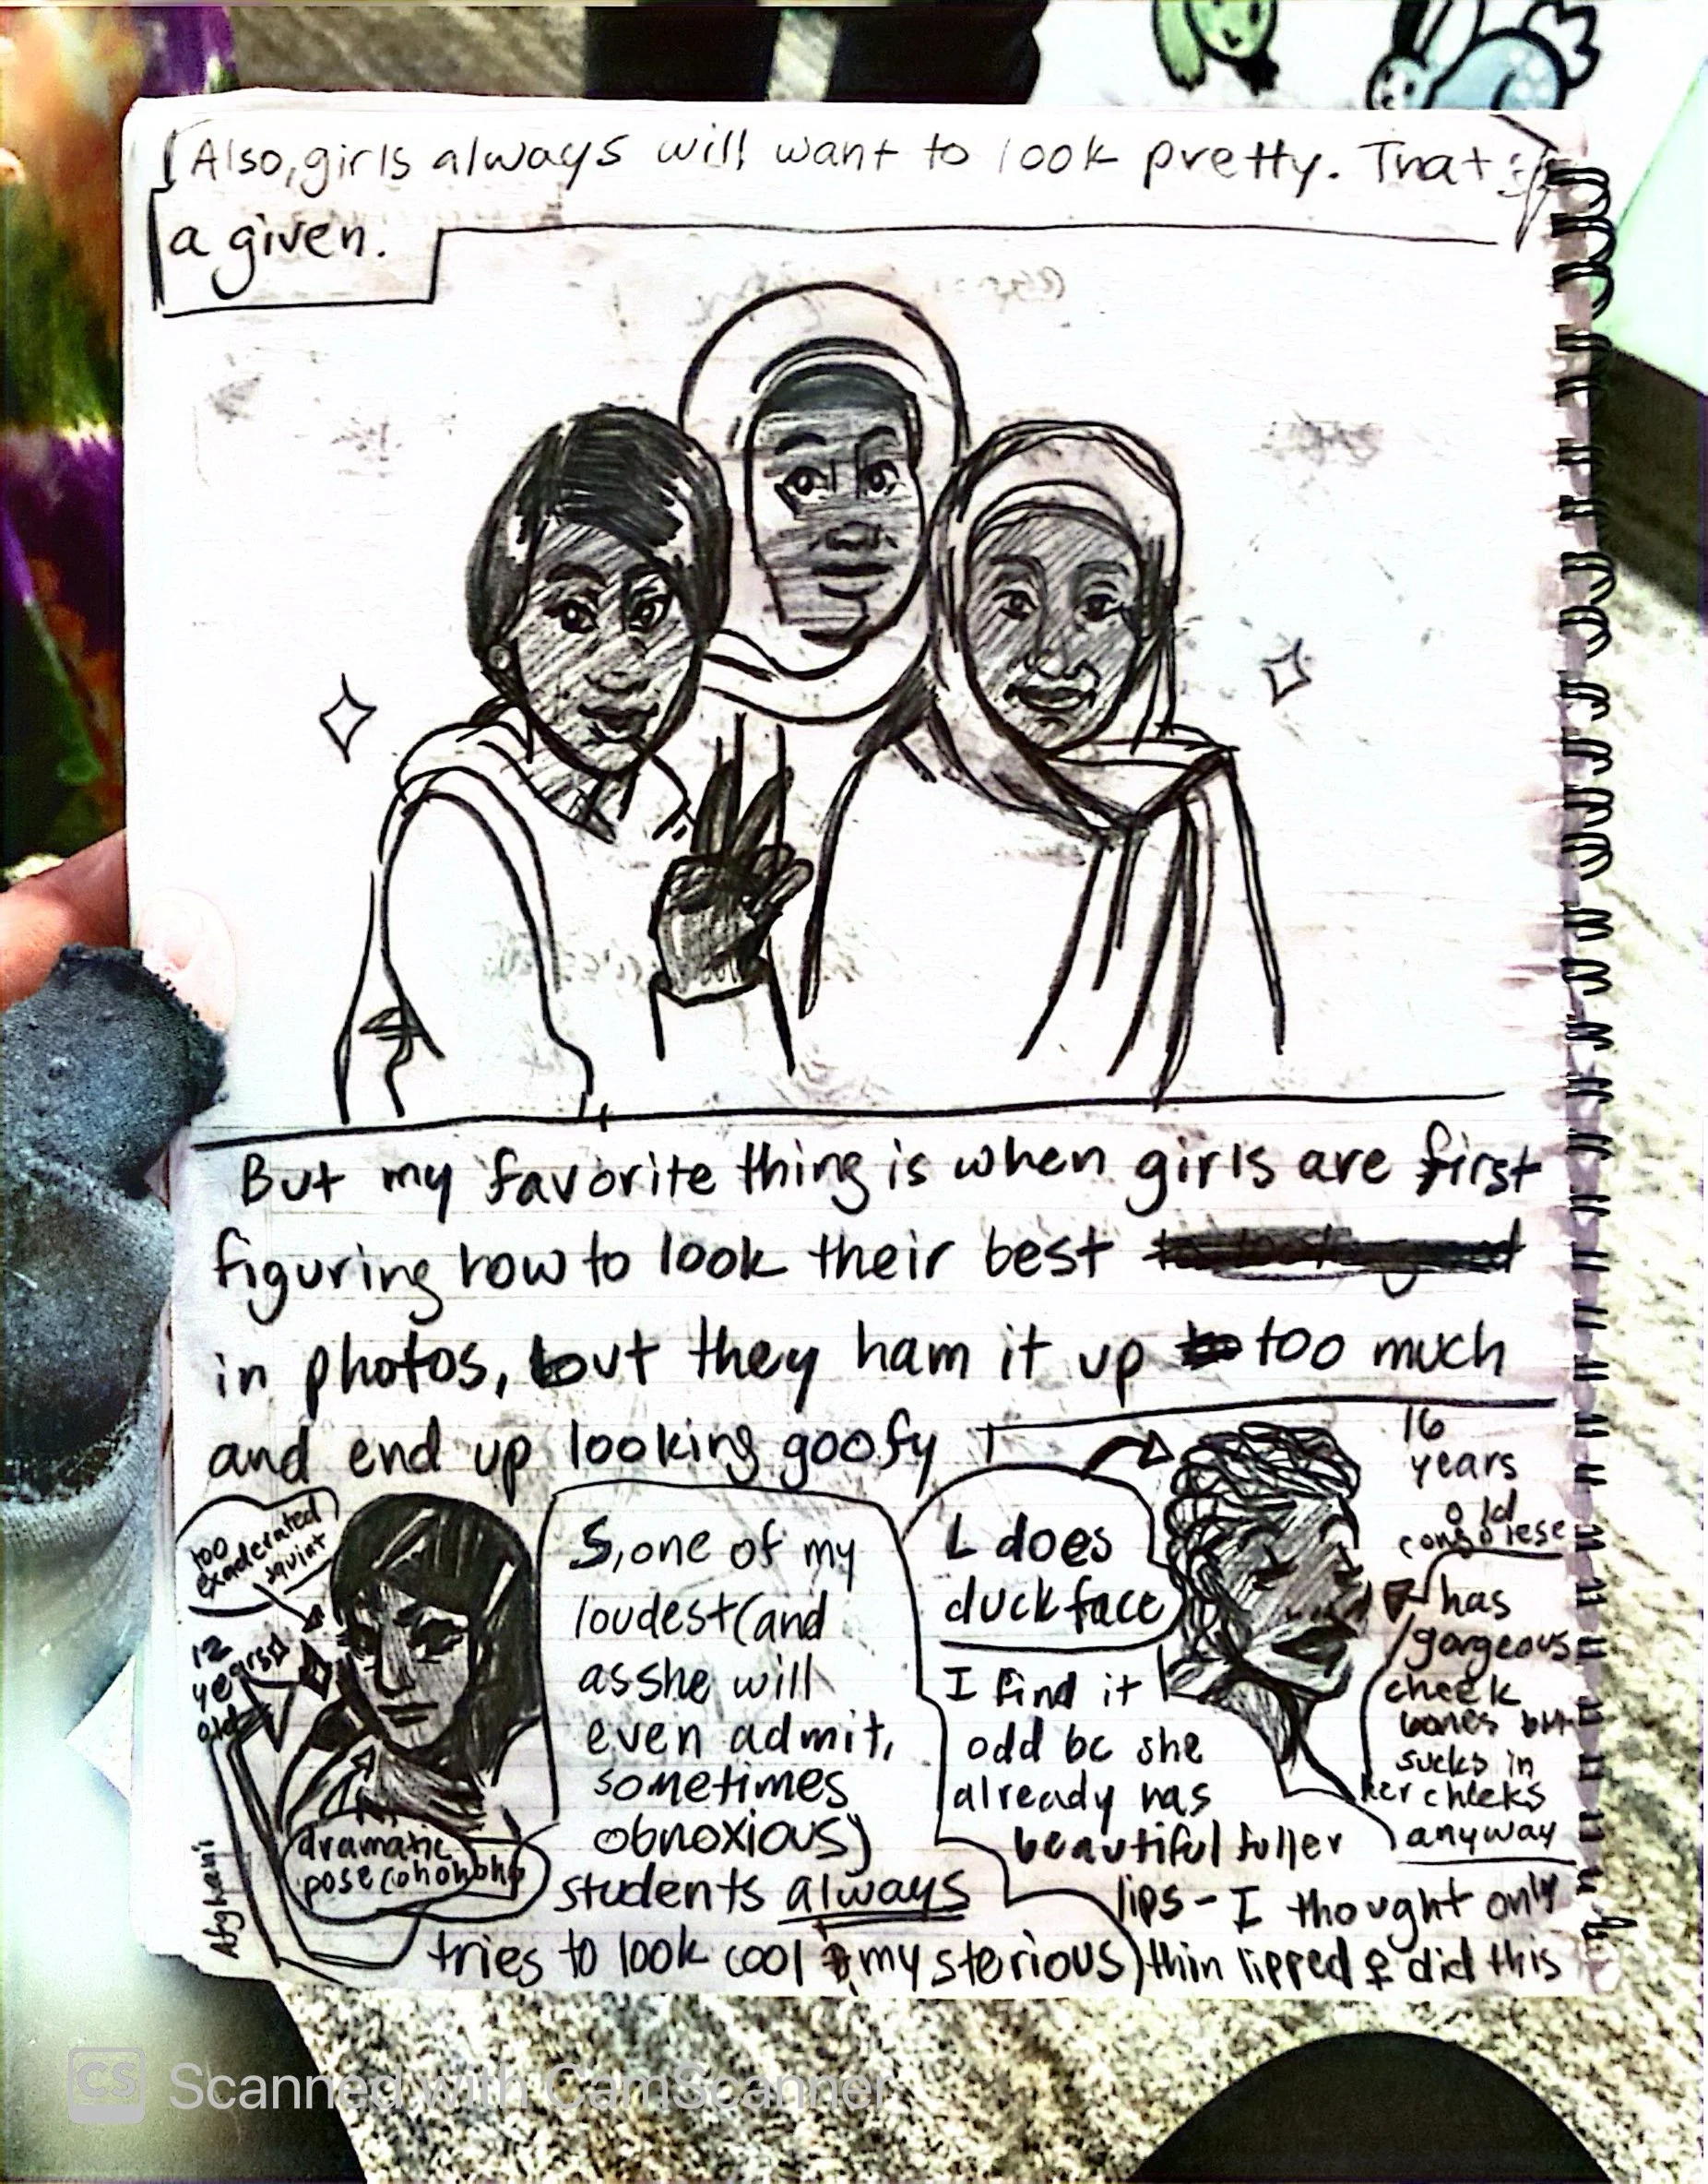 Also, girls always will want to look pretty. That's
a given.
But my favorite thing is when girls are first
figuring how to look their best
in photos, but they ham it up too much
and end up looking goofy
too
exaderrated
squint
12
years
old
Afghani
dramatic
pose (ohohoho)
S, one of my
loudest (and
as she will
even admit,
sometimes
obnoxious)
students always
tries to look cool & mysterious
L does
duckface
I find it
odd bc she
already has
beautiful fuller
lips - I thought only
thin lipped ♀ did this
16
years
old
congolese
has
gorgeous
cheek
bones but
sucks in
her cheeks
anyway
CS Scanned with CamScanner